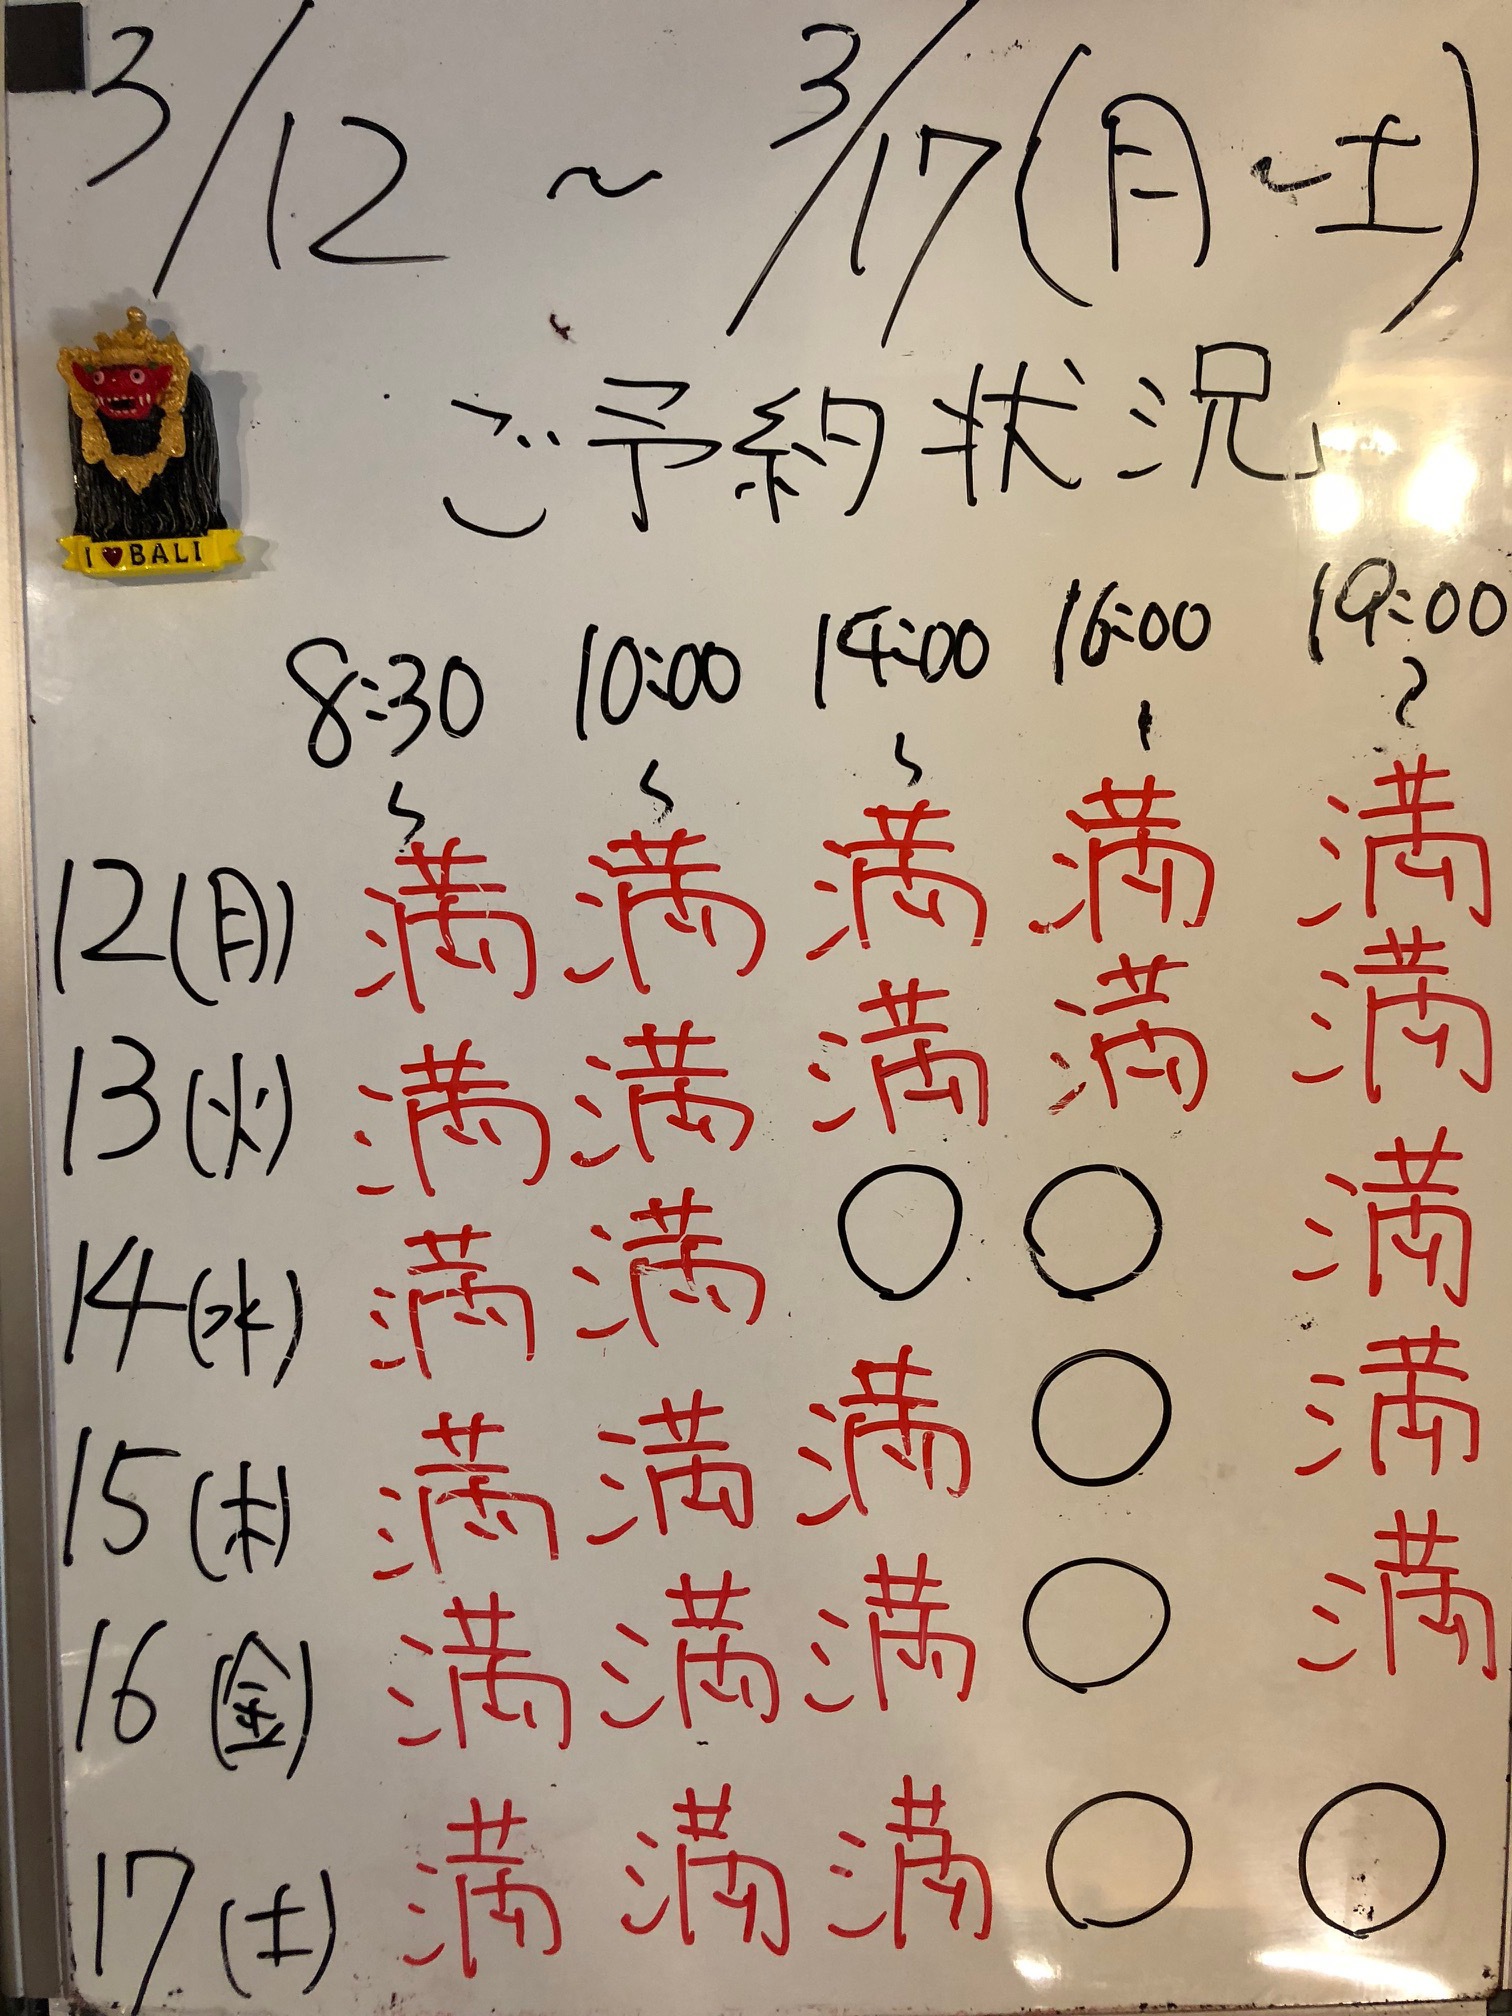 3/12 ~ 3/17(月~土)
ご予約状況
I ♥ BALI
8:30~ 10:00~ 14:00~ 16:00~ 19:00~
12(月) 満 満 満 満 満
13(火) 満 満 満 満 満
14(水) 満 満 ○ ○ 満
15(木) 満 満 満 ○ 満
16(金) 満 満 満 ○ 満
17(土) 満 満 満 ○ ○